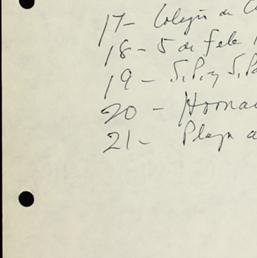 17- Colegio de
18- 5 de Feb
19- S.P. y S.P
20 - Hornac
21- Plaza a